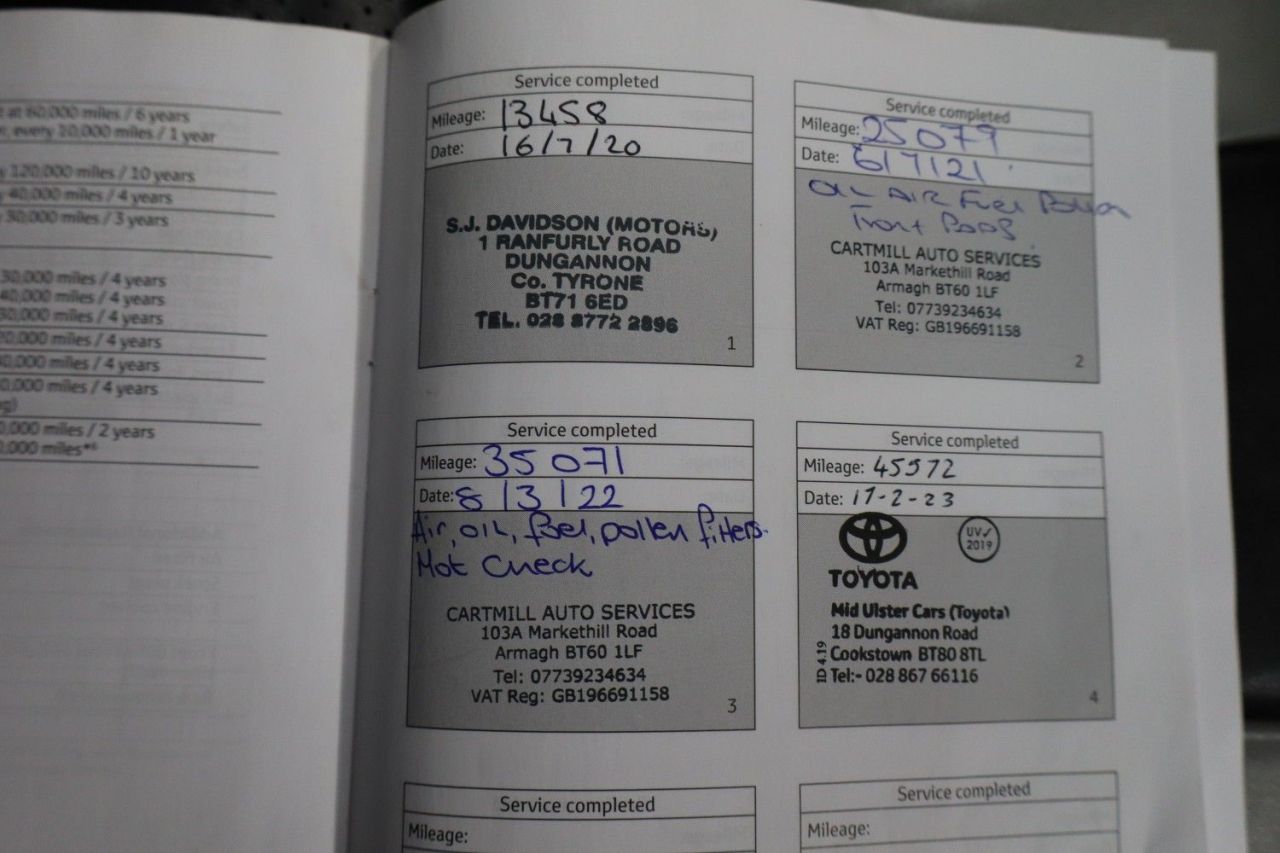 at 60,000 miles / 6 years
every 10,000 miles / 1 year
120,000 miles / 10 years
40,000 miles / 4 years
30,000 miles / 3 years
30,000 miles / 4 years
40,000 miles / 4 years
30,000 miles / 4 years
20,000 miles / 4 years
0,000 miles / 4 years
0,000 miles / 4 years
0,000 miles / 2 years
0,000 miles*⁶
Service completed
Mileage: 13458
Date: 16/7/20
S.J. DAVIDSON (MOTORS)
1 RANFURLY ROAD
DUNGANNON
Co. TYRONE
BT71 6ED
TEL. 028 8772 2896
1
Service completed
Mileage: 25079
Date: 6/7/21
OIL AIR Fuel Pollen
Front Pads
CARTMILL AUTO SERVICES
103A Markethill Road
Armagh BT60 1LF
Tel: 07739234634
VAT Reg: GB196691158
2
Service completed
Mileage: 35071
Date: 8/3/22
Air, oil, fuel, pollen filters.
Mot Check
CARTMILL AUTO SERVICES
103A Markethill Road
Armagh BT60 1LF
Tel: 07739234634
VAT Reg: GB196691158
3
Service completed
Mileage: 45972
Date: 17-2-23
UV✓
2019
TOYOTA
Mid Ulster Cars (Toyota)
18 Dungannon Road
Cookstown BT80 8TL
Tel:- 028 867 66116
ID 4.19
4
Service completed
Mileage:
Service completed
Mileage: